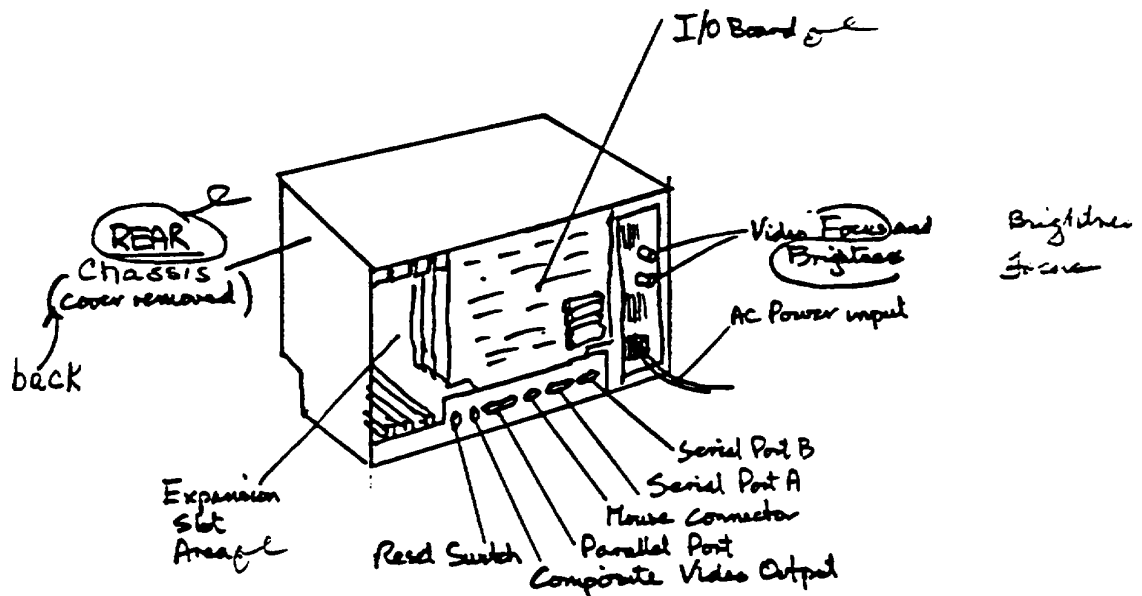 I/O Board
REAR
Chassis
(cover removed)
back
Video Focus and
Brightness
AC Power input
Serial Port B
Serial Port A
Mouse Connector
Parallel Port
Composite Video Output
Reset Switch
Expansion
Slot
Area